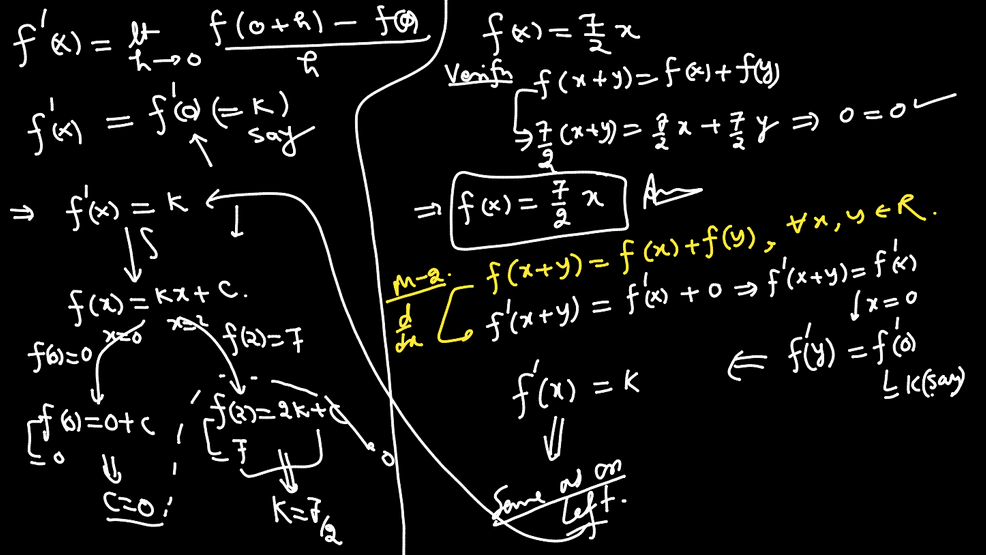 f'(x) = lt h→0 f(0+h) − f(0) / h
f'(x) = f'(0) (= K) say
⇒ f'(x) = K
∫
f(x) = Kx + C.
x=0 x=2
f(0)=0 f(2)=7
f(0)=0+C f(2)=2K+C
0 7 0
C=0 K=7/2
f(x) = 7/2 x
Verify f(x+y) = f(x)+f(y)
7/2 (x+y) = 7/2 x + 7/2 y ⇒ 0 = 0 ✓
⇒ f(x) = 7/2 x Ans
M-2. f(x+y) = f(x)+f(y), ∀ x, y ∈ R.
d/dx f'(x+y) = f'(x) + 0 ⇒ f'(x+y) = f'(x)
↓ x=0
⇐ f'(y) = f'(0)
K(say)
f'(x) = K
Same as on
Left.